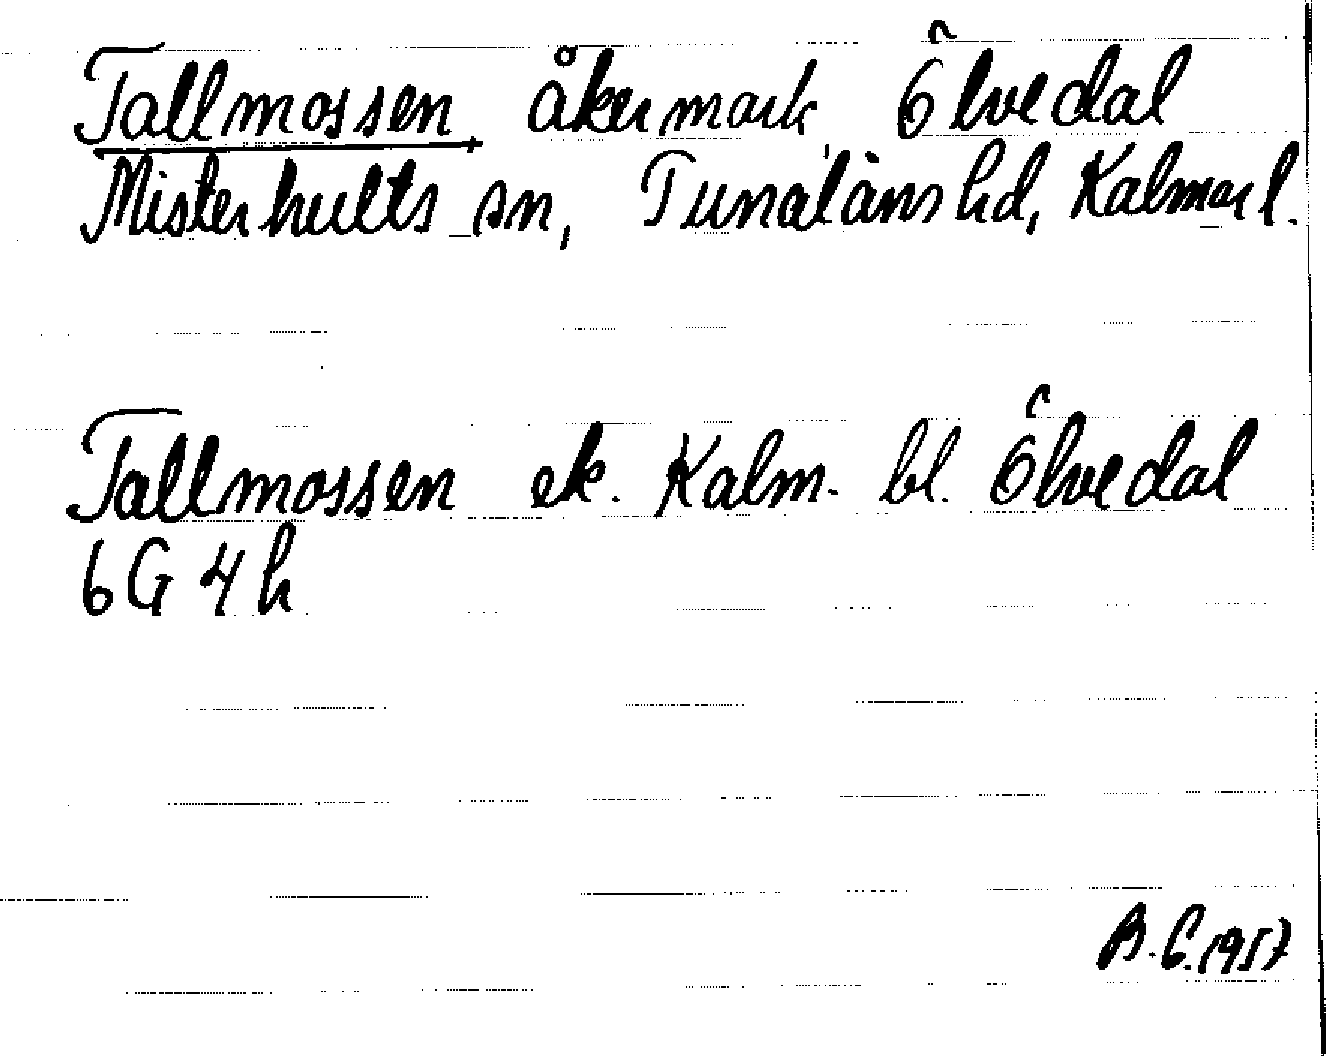 Tallmossen, åkermark, Ölvedal
Misterhults sn, Tunaläns hd, Kalmar l.
Tallmossen ek. Kalm. bl. Ölvedal
6G 4h
B.C. 1957